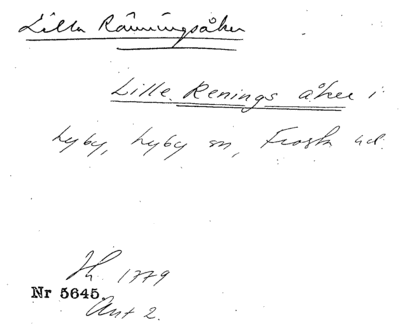 Lilla Ränningsåker
Lille Renings åker i
Lyby, Lyby sn, Frosta hd.
Ht. 1779
Nr 5645.
Akt 2.